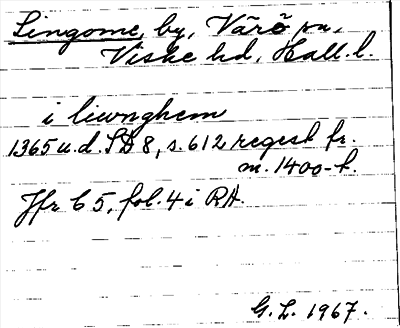 Lingome, by, Värö sn,
Viske hd, Hall. l.
i liwnghem
1365 u.d. SD 8, s. 612 regest fr.
m. 1400-t.
Jfr C 5, fol. 4 i RA.
G. L. 1967.